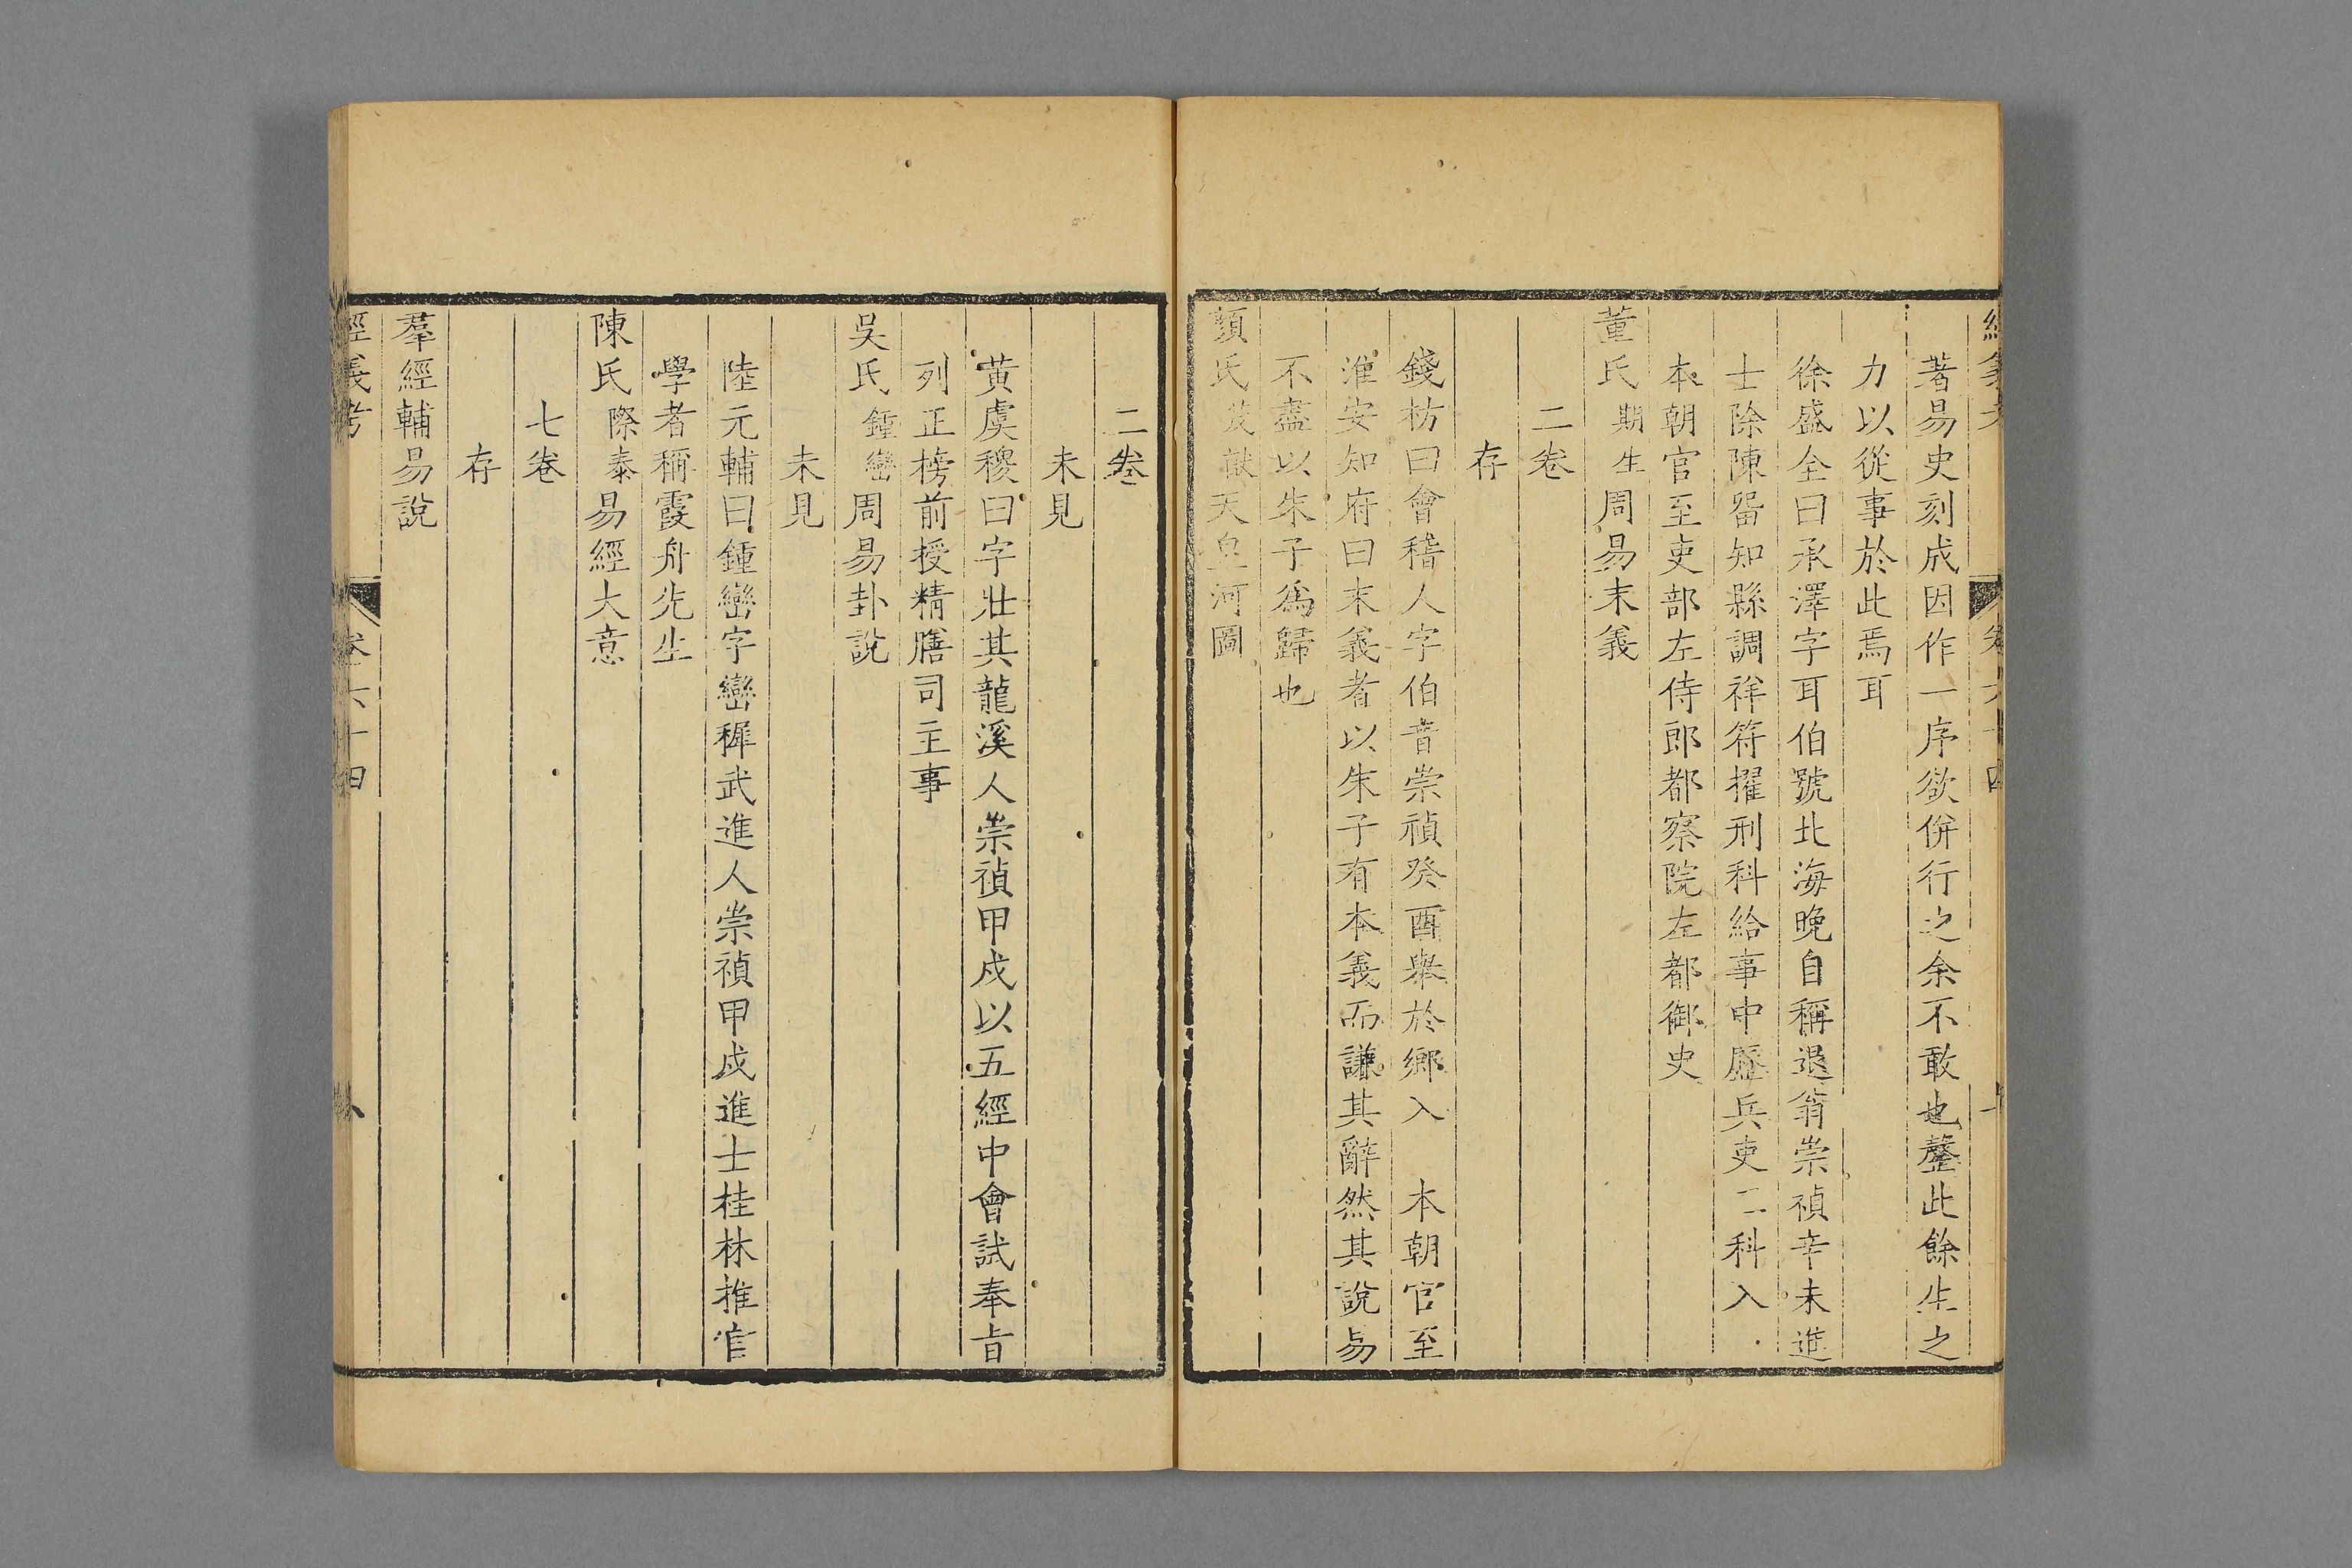 著易史刻成因作一序欲併行之余不敢也罄此餘生之
力以從事於此焉耳
徐盛全曰承澤字耳伯號北海晚自稱退翁崇禎辛未進
士除陳畱知縣調祥符擢刑科給事中歷兵吏二科入
本朝官至吏部左侍郎都察院左都御史
董氏期生周易末義
二卷
存
錢枋曰會稽人字伯音崇禎癸酉舉於鄉入　本朝官至
淮安知府曰末義者以朱子有本義而謙其辭然其說易
不盡以朱子為歸也
顏氏茂猷天皇河圖
二卷
未見
黃虞稷曰字壯其龍溪人崇禎甲戌以五經中會試奉旨
列正榜前授精膳司主事
吳氏鍾巒周易卦說
未見
陸元輔曰鍾巒字巒穉武進人崇禎甲戌進士桂林推官
學者稱霞舟先生
陳氏際泰易經大意
七卷
存
羣經輔易說
經義考　卷六十四